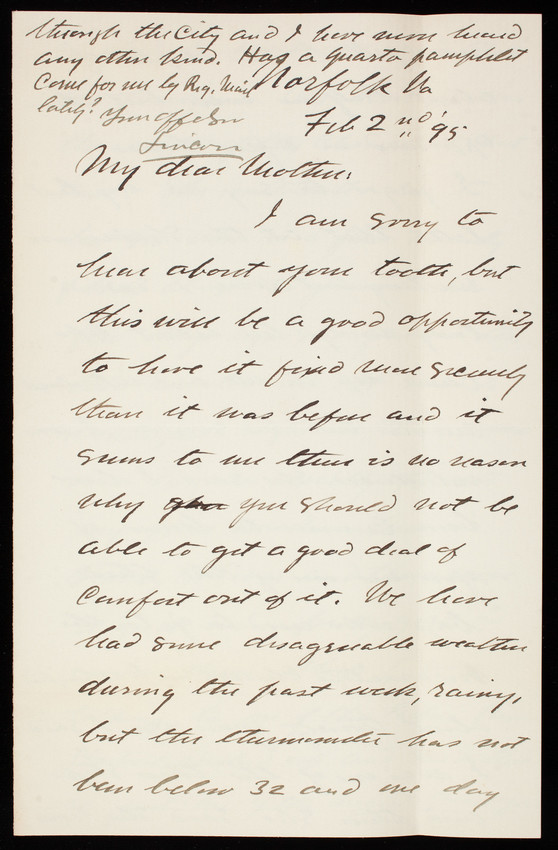 through the City and I have never heard
any other kind. Has a Quarto pamphlet
come for me by Reg. Mail
lately? Your aff. Son
Norfolk Va
Feb 2nd '95
My dear Mother:
I am sorry to
hear about your tooth, but
this will be a good opportunity
to have it fixed more securely
than it was before and it
seems to me there is no reason
why you should not be
able to get a good deal of
Comfort out of it. We have
had some disagreeable weather
during the past week, rainy,
but the thermometer has not
been below 32 and one day